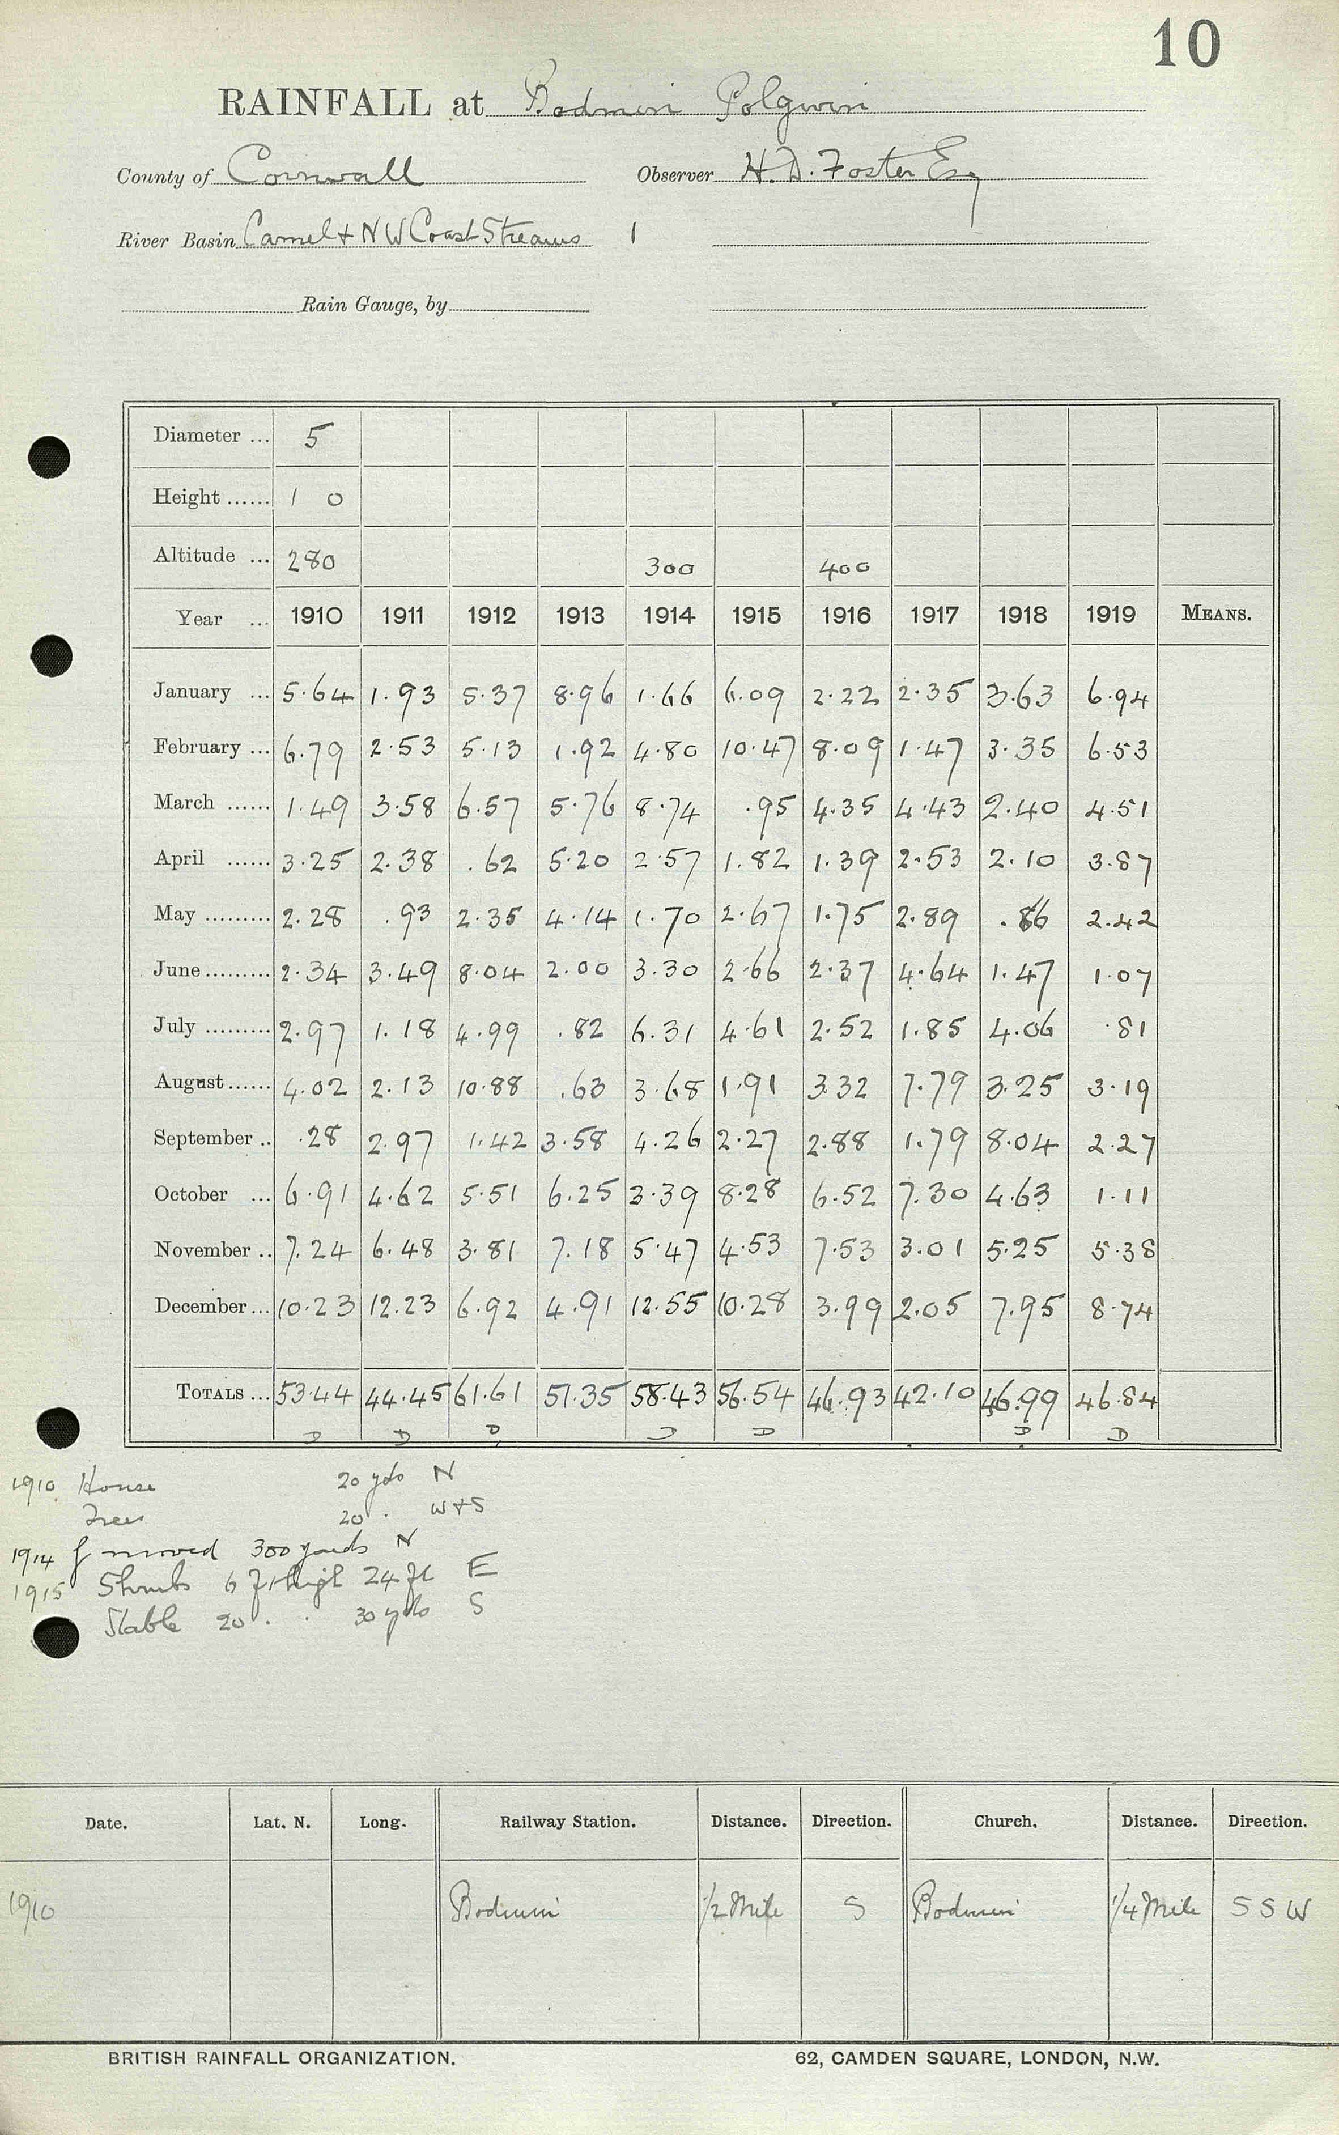 10
RAINFALL at Bodmin Polgwin
County of Cornwall Observer H. D. Foster Esq
River Basin Camel & N W Coast Streams 1
Rain Gauge, by
Diameter ... 5
Height ...... 1 0
Altitude ... 280 300 400
Year ... 1910 1911 1912 1913 1914 1915 1916 1917 1918 1919 MEANS.
January ... 5.64 1.93 5.37 8.96 1.66 6.09 2.22 2.35 3.63 6.94
February ... 6.79 2.53 5.13 1.92 4.80 10.47 8.09 1.47 3.35 6.53
March ...... 1.49 3.58 6.57 5.76 8.74 .95 4.35 4.43 2.40 4.51
April ...... 3.25 2.38 .62 5.20 2.57 1.82 1.39 2.53 2.10 3.87
May ......... 2.28 .93 2.35 4.14 1.70 2.67 1.75 2.89 .86 2.42
June ......... 2.34 3.49 8.04 2.00 3.30 2.66 2.37 4.64 1.47 1.07
July ......... 2.97 1.18 4.99 .82 6.31 4.61 2.52 1.85 4.06 .81
August ...... 4.02 2.13 10.88 .63 3.68 1.91 3.32 7.79 3.25 3.19
September .. .28 2.97 1.42 3.58 4.26 2.27 2.88 1.79 8.04 2.27
October ... 6.91 4.62 5.51 6.25 3.39 8.28 6.52 7.30 4.63 1.11
November .. 7.24 6.48 3.81 7.18 5.47 4.53 7.53 3.01 5.25 5.38
December ... 10.23 12.23 6.92 4.91 12.55 10.28 3.99 2.05 7.95 8.74
TOTALS ... 53.44 44.45 61.61 51.35 58.43 56.54 46.93 42.10 46.99 46.84
D D D D D D D
1910 House 20 yds N
Trees 20 . W & S
1914 g moved 300 yards N
1915 Shrubs 6 ft high 24 ft E
Stable 20 . . 30 yds S
Date. Lat. N. Long. Railway Station. Distance. Direction. Church. Distance. Direction.
1910 Bodmin 1/2 Mile S Bodmin 1/4 Mile S S W
BRITISH RAINFALL ORGANIZATION. 62, CAMDEN SQUARE, LONDON, N.W.